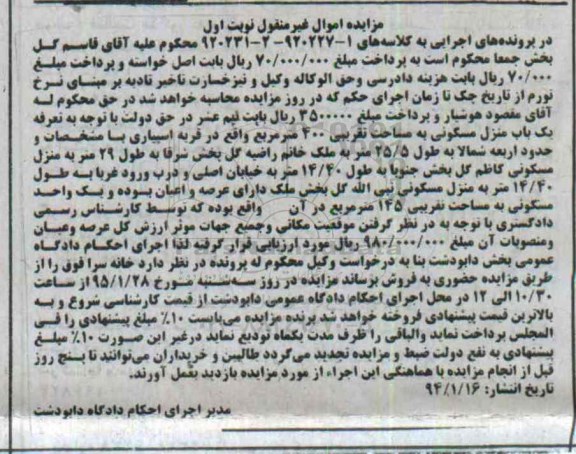 مزایده اموال غیرمنقول نوبت اول
در پرونده‌های اجرایی به کلاسه‌های ۱-۹۲۰۲۲۷-۲-۹۲۰۲۳۱ محکوم علیه آقای قاسم گل
بخش جمعا محکوم است به پرداخت مبلغ ۷۰/۰۰۰/۰۰۰ ریال بابت اصل خواسته و پرداخت مبلغ
۷۰/۰۰۰ ریال بابت هزینه دادرسی وحق الوکاله وکیل و نیزخسارت تاخیر تادیه بر مبنای نرخ
تورم از تاریخ چک تا زمان اجرای حکم که در روز مزایده محاسبه خواهد شد در حق محکوم له
آقای مقصود هوشیار و پرداخت مبلغ ۳۵۰۰۰۰۰ ریال بابت نیم عشر در حق دولت با توجه به تعرفه
یک باب منزل مسکونی به مساحت تقریبی ۴۰۰ مترمربع واقع در قریه اسپیاری با مشخصات و
حدود اربعه شمالا به طول ۲۵/۵ متر به ملک خانم راضیه گل بخش شرقا به طول ۲۹ متر به منزل
مسکونی کاظم گل بخش جنوبا به طول ۱۴/۴۰ متر به خیابان اصلی و درب ورود غربا به طول
۱۴/۴۰ متر به منزل مسکونی نبی الله گل بخش ملک دارای عرصه و اعیان بوده و یک واحد
مسکونی به مساحت تقریبی ۱۴۵ مترمربع در آن واقع بوده که توسط کارشناس رسمی
دادگستری با توجه به در نظر گرفتن موقعیت مکانی وجمیع جهات موثر ارزش کل عرصه وعیان
ومنصوبات آن مبلغ ۹۸۰/۰۰۰/۰۰۰ ریال مورد ارزیابی قرار گرفته لذا اجرای احکام دادگاه
عمومی بخش دابودشت بنا به درخواست وکیل محکوم له پرونده در نظر دارد خانه سرا فوق را از
طریق مزایده حضوری به فروش برساند مزایده در روز سه‌شنبه مورخ ۹۵/۱/۲۸ از ساعت
۱۰/۳۰ الی ۱۲ در محل اجرای احکام دادگاه عمومی دابودشت از قیمت کارشناسی شروع و به
بالاترین قیمت پیشنهادی فروخته خواهد شد برنده مزایده می‌بایست ۱۰٪ مبلغ پیشنهادی را فی
المجلس پرداخت نماید والباقی را ظرف مدت یکماه تودیع نماید درغیر این صورت ۱۰٪ مبلغ
پیشنهادی به نفع دولت ضبط و مزایده تجدید می‌گردد طالبین و خریداران می‌توانند تا پنج روز
قبل از انجام مزایده با هماهنگی این اجراء از مورد مزایده بازدید بعمل آورند.
تاریخ انتشار: ۹۴/۱/۱۶
مدیر اجرای احکام دادگاه دابودشت